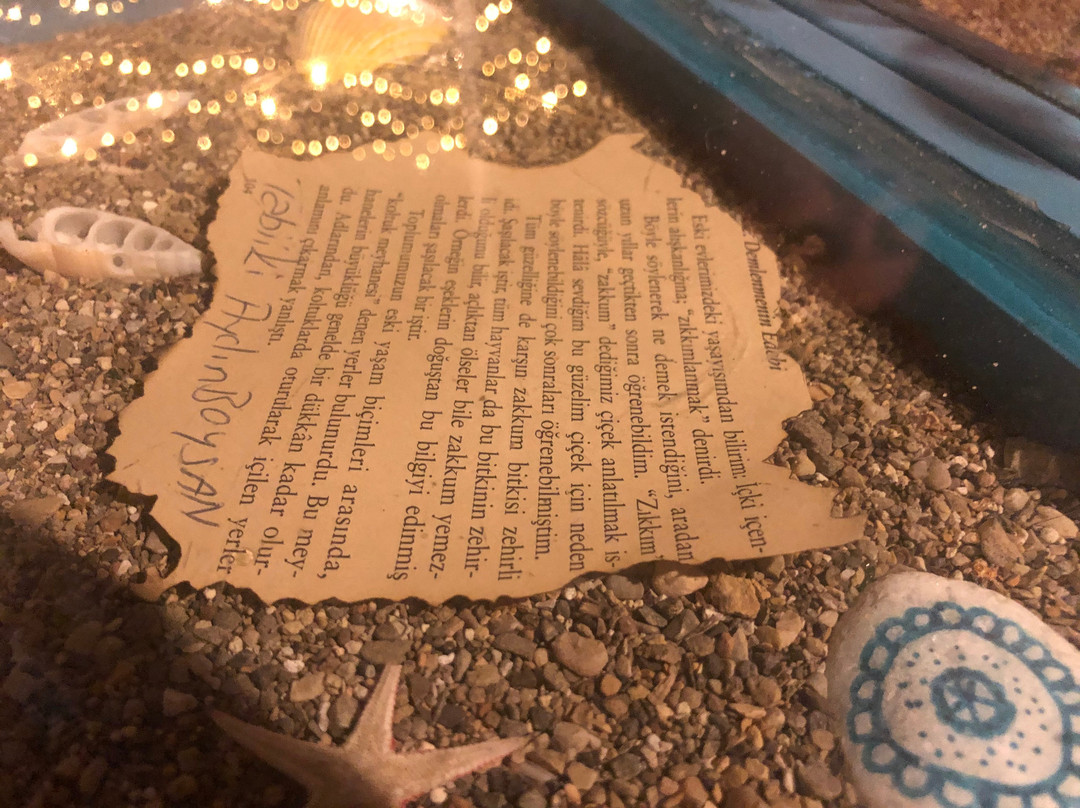 Demlenmenin Edebi
Eski evlerimizdeki yaşayışımdan bilirim: İçki içen-
lerin alışkanlığına; "zıkkımlanmak" denirdi.
Böyle söylenerek ne demek istendiğini, aradan
uzun yıllar geçtikten sonra öğrenebildim. "Zıkkım"
sözcüğüyle, "zakkum" dediğimiz çiçek anlatılmak is-
tenirdi. Hâlâ sevdiğim bu güzelim çiçek için neden
böyle söylenebildiğini çok sonraları öğrenebilmiştim.
Tüm güzelliğine de karşın zakkum bitkisi zehirli
idi. Şaşılacak iştir, tüm hayvanlar da bu bitkinin zehir-
li olduğunu bilir, açlıktan ölseler bile zakkum yemez-
lerdi. Örneğin eşeklerin doğuştan bu bilgiyi edinmiş
olmaları şaşılacak bir iştir.
Toplumumuzun eski yaşam biçimleri arasında,
"koltuk meyhanesi" denen yerler bulunurdu. Bu mey-
hanelerin büyüklüğü genelde bir dükkân kadar olur-
du. Adlarından, koltuklarda oturularak içilen yerler
anlamını çıkarmak yanlıştı.
AydınBoysAN